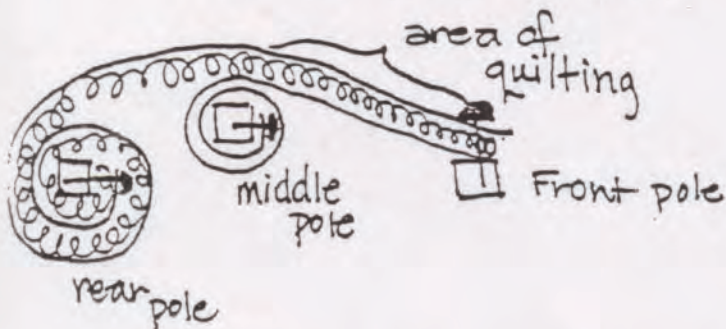 area of
quilting
middle
pole
Front pole
rear
pole